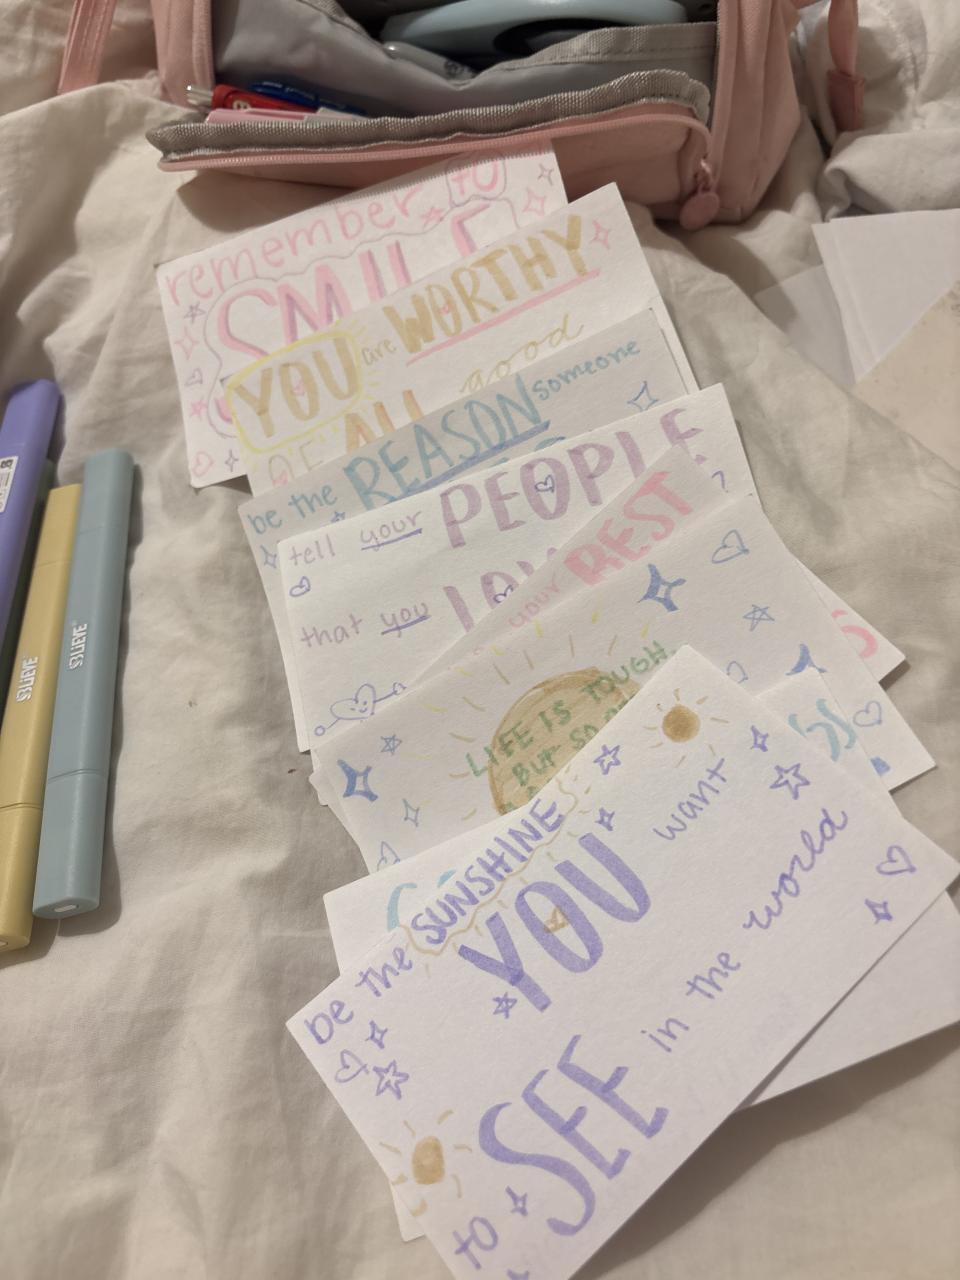 remember to
SMILE
YOU are WORTHY
OF ALL good
be the REASON someone
tell your PEOPLE
that you
your BEST
LIFE IS TOUGH
BUT SO
be the SUNSHINE
YOU want
to SEE in the world
BLIEVE
BLIEVE